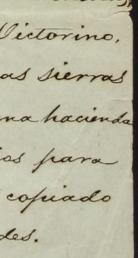 Victorino,
as sierras
una hacienda
ios para
copiado
des.